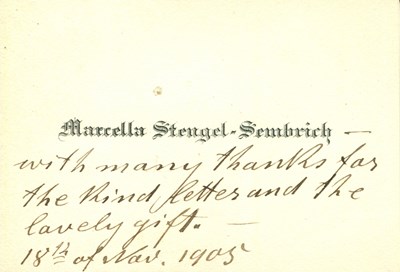 Marcella Stengel-Sembrich —
with many thanks for
the kind letter and the
lovely gift. —
18th of Nov. 1905